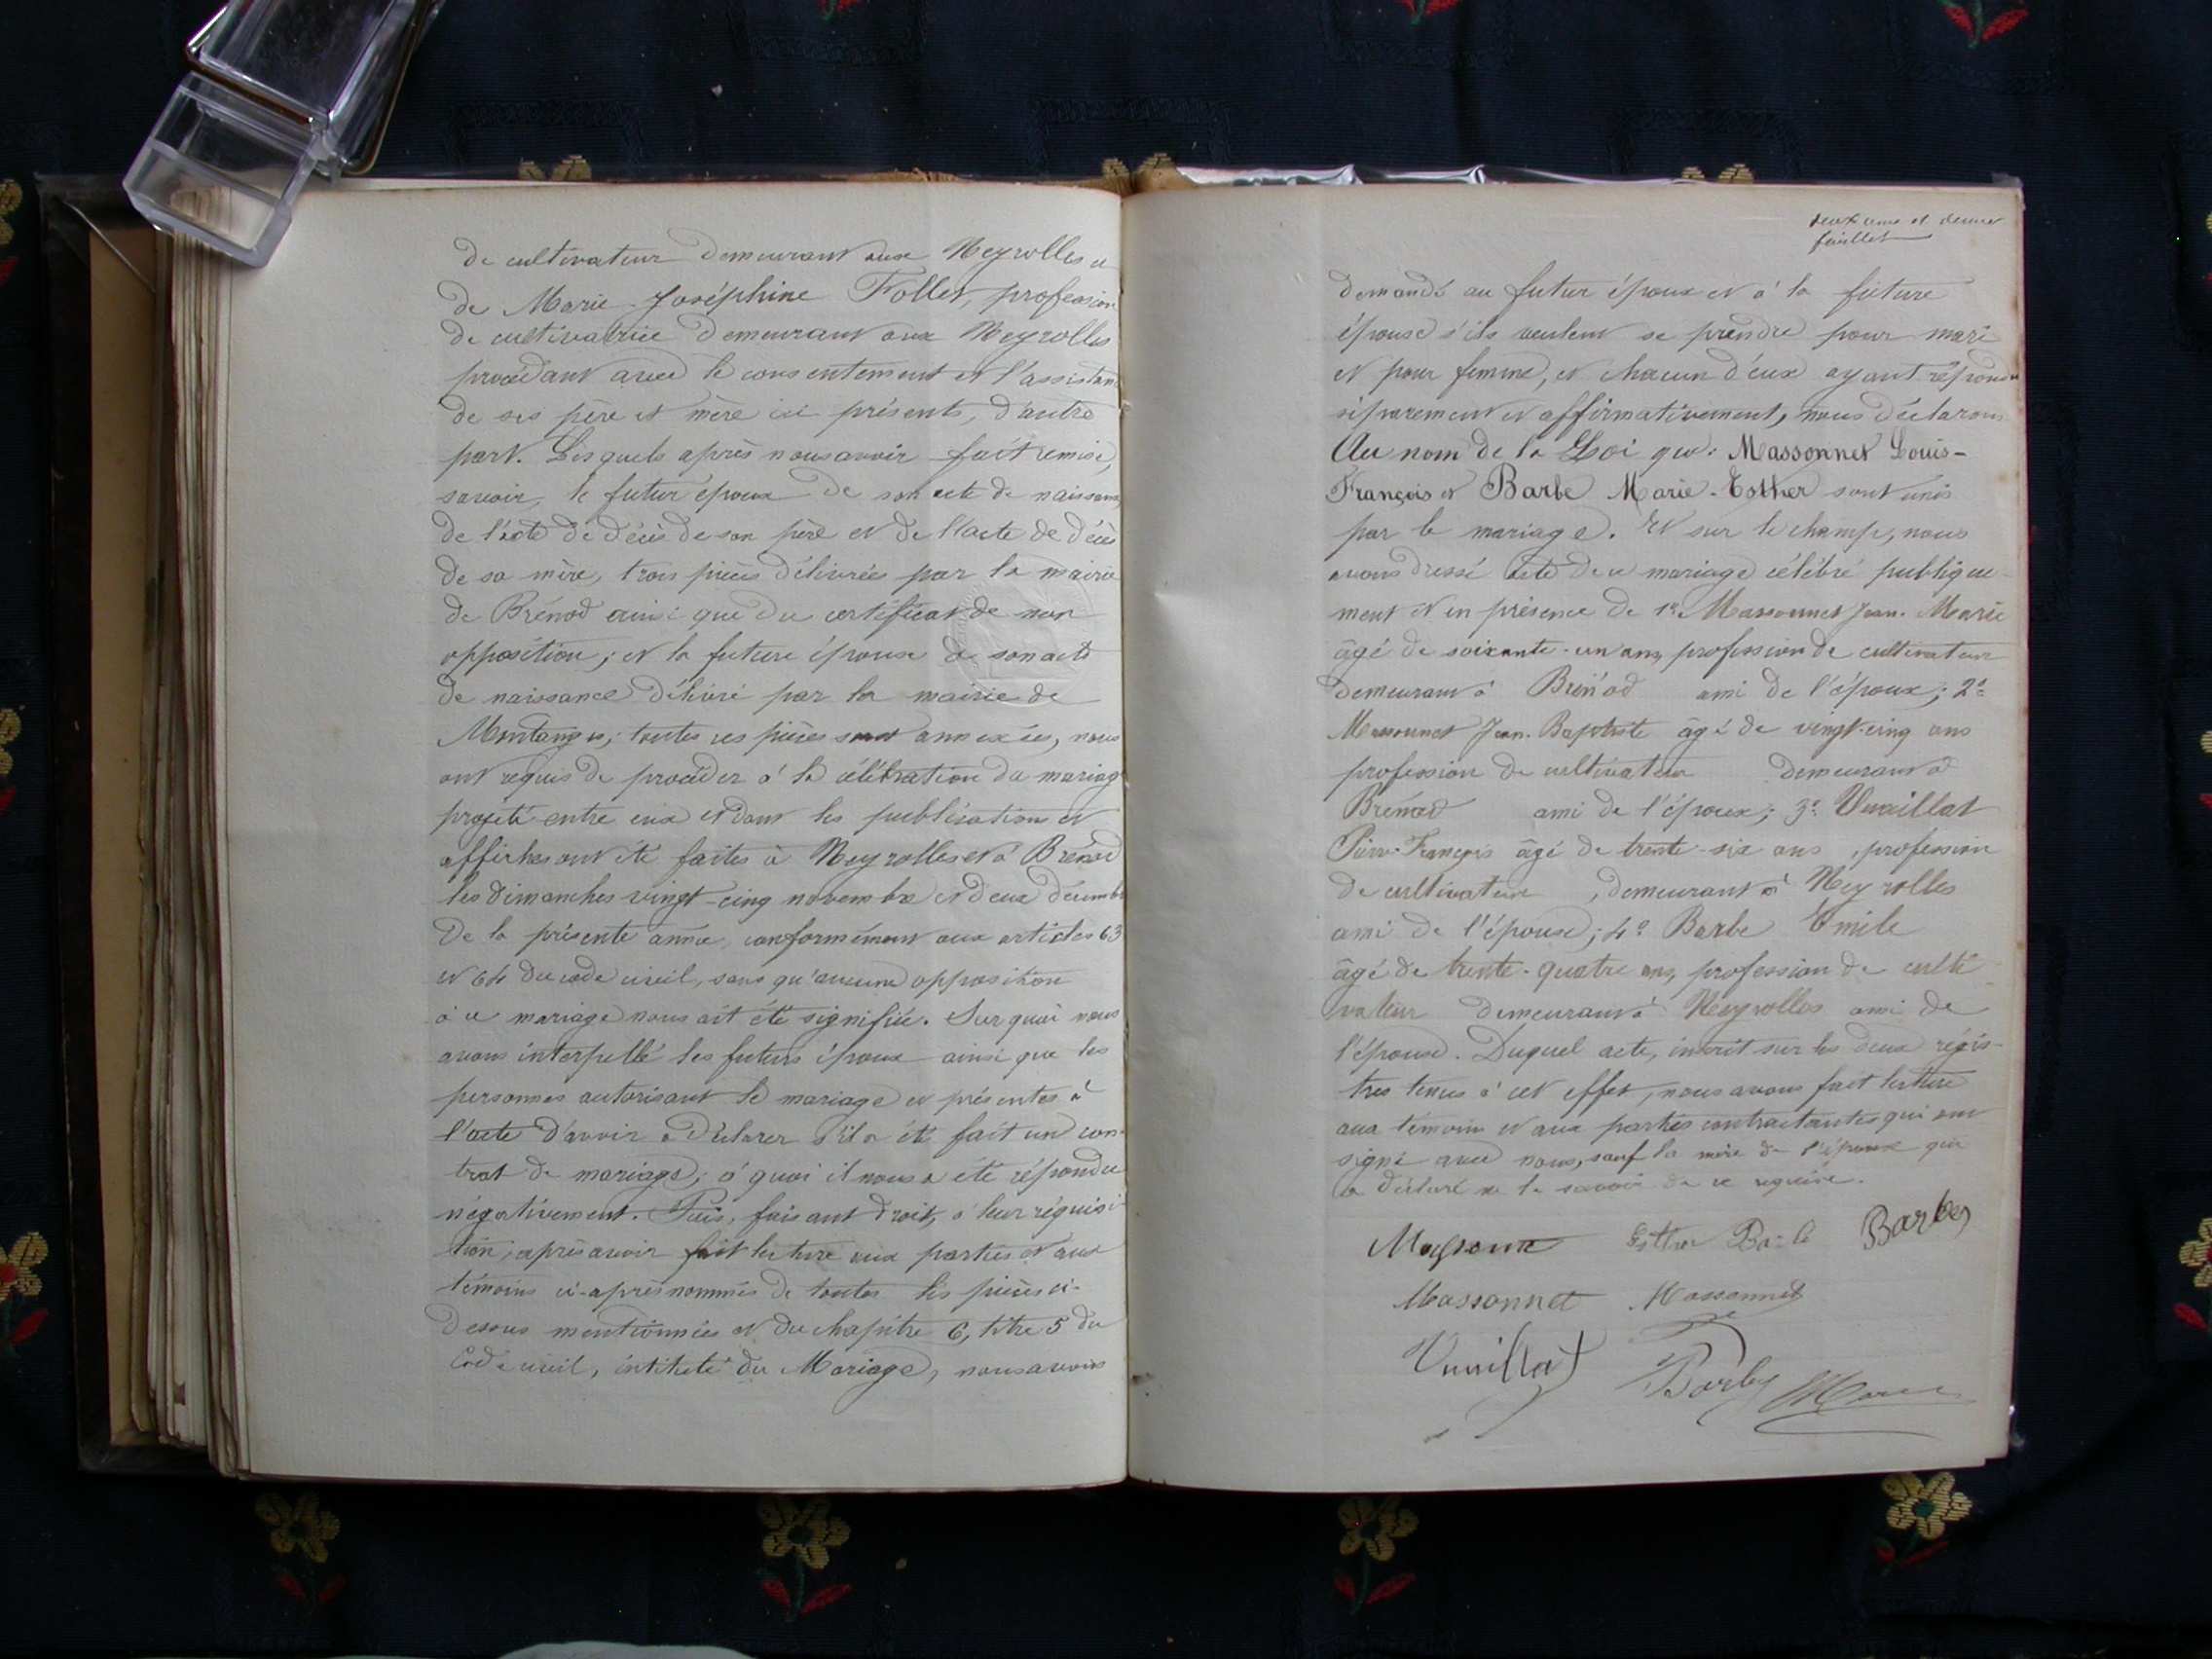 de cultivateur demeurant aux Neyrolles et
de Marie-Joséphine Follet, profession
de cultivatrice demeurant aux Neyrolles
procédant avec le consentement et l'assistan
de ses père et mère ici présents, d'autre
part. Lesquels après nous avoir fait remise,
savoir, le futur époux de son acte de naissance,
de l'acte de décès de son père et de l'acte de décès
de sa mère, trois pièces délivrées par la mairie
de Brénod ainsi que du certificat de non
opposition; et la future épouse de son acte
de naissance délivré par la mairie de
Montanges; toutes ces pièces sont annexées, nous
ont requis de procéder à la célébration du mariage
projeté entre eux et dont les publications et
affiches ont été faites à Neyrolles et à Brénod
les dimanches vingt-cinq novembre et deux décembre
de la présente année, conformément aux articles 63
et 64 du code civil, sans qu'aucune opposition
à ce mariage nous ait été signifiée. Sur quoi nous
avons interpellé les futurs époux ainsi que les
personnes autorisant le mariage et présentes à
l'acte d'avoir à déclarer s'il a été fait un con-
trat de mariage; à quoi il nous a été répondu
négativement. Puis, faisant droit, à leur réquisi-
tion, après avoir fait lecture aux parties et aux
témoins ci-après nommés de toutes les pièces ci-
dessus mentionnées et du chapitre 6, titre 5 du
Code civil, intitulé du Mariage, nous avons
deuxième et dernier
feuillet
demandé au futur époux et à la future
épouse s'ils veulent se prendre pour mari
et pour femme, et chacun d'eux ayant répondu
séparement et affirmativement, nous déclarons
Au nom de la Loi que: Massonnet Louis-
François et Barbe Marie-Esther sont unis
par le mariage. Et sur le champ, nous
avons dressé acte de ce mariage célébré publique-
ment et en présence de 1º Massonnet Jean-Marie
âgé de soixante-un ans, profession de cultivateur
demeurant à Brénod ami de l'époux; 2º
Massonnet Jean-Baptiste âgé de vingt-cinq ans
profession de cultivateur demeurant à
Brénod ami de l'époux; 3º Vuaillat
Pierre-François âgé de trente-six ans, profession
de cultivateur, demeurant à Neyrolles
ami de l'épouse; 4º Barbe Emile
âgé de trente-quatre ans, profession de culti-
vateur demeurant à Neyrolles ami de
l'épouse. Duquel acte, inscrit sur les deux régis-
tres tenus à cet effet, nous avons fait lecture
aux témoins et aux parties contractantes qui ont
signé avec nous, sauf la mère de l'épouse qui
a déclaré ne le savoir de ce requise.
Massonnet Esther Barbe Barbe
Massonnet Massonnet
Vuaillat Barbe